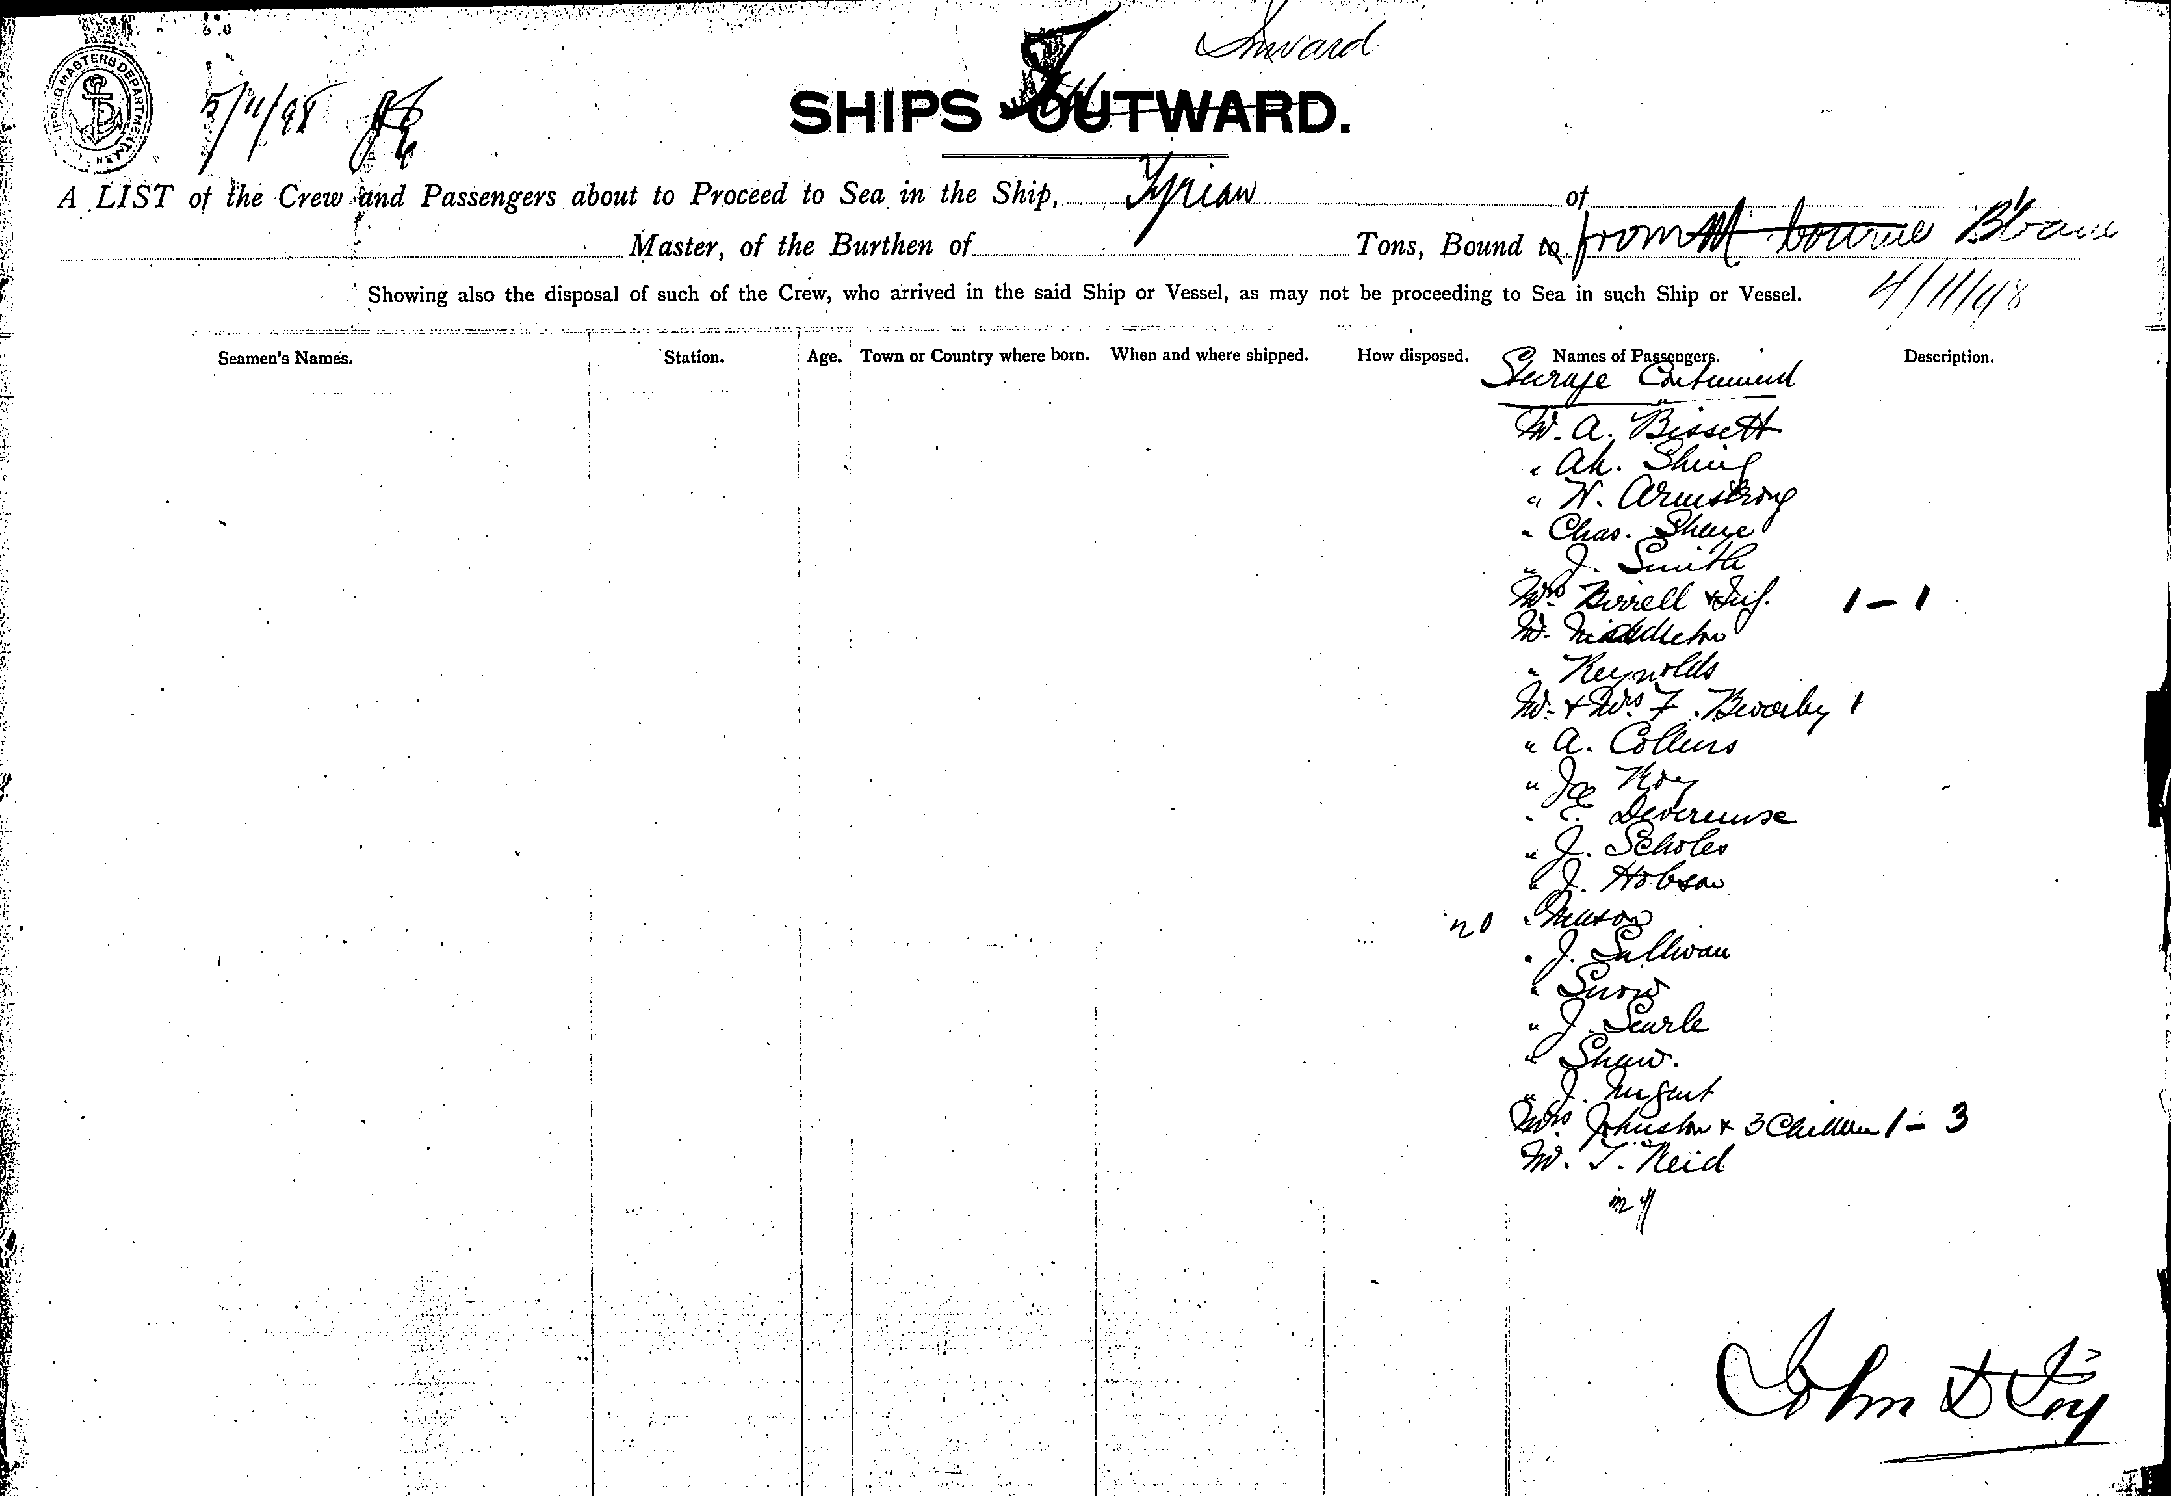 Inward
SHIPS OUTWARD.
SHIPPING MASTERS DEPARTMENT
5/11/98
A LIST of the Crew and Passengers about to Proceed to Sea in the Ship, Tyrian of
Master, of the Burthen of Tons, Bound to from M bourne B'bane
4/11/98
Showing also the disposal of such of the Crew, who arrived in the said Ship or Vessel, as may not be proceeding to Sea in such Ship or Vessel.
Seamen's Names. Station. Age. Town or Country where born. When and where shipped. How disposed. Names of Passengers. Description.
Steerage Continued
Mr. A. Bissett
" Ah. Shing
" W. Armstrong
" Chas. Shaye
" J. Smith
Mrs Birrell & Inf. 1 - 1
Mr. Middleton
" Reynolds
Mr. & Mrs F. 1
" A. Collins
" Roy
" E.
" J. Scholes
" J. Hobson
20 " Mason
" J. Sullivan
" Snow
" J. Searle
" Shaw.
" J. Nugent
Mrs Johnston & 3 Children 1 - 3
Mr. T. Reid
John